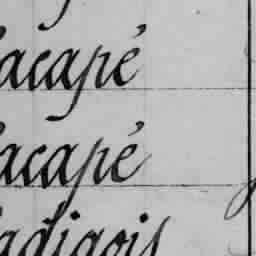 acapé
acapé
adigois